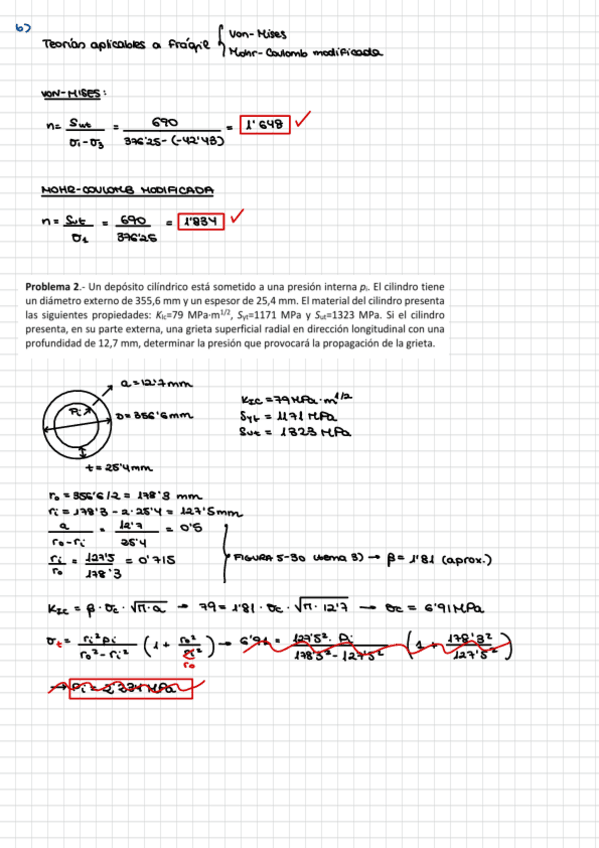 b)
Teorías aplicables a frágil { Von-Mises
Mohr-Coulomb modificada
VON-MISES:
n = Sut / (σ1 - σ3) = 690 / (376'25 - (-42'43)) = 1'648 ✓
MOHR-COULOMB MODIFICADA
n = Sut / σ1 = 690 / 376'25 = 1'834 ✓
Problema 2.- Un depósito cilíndrico está sometido a una presión interna pi. El cilindro tiene
un diámetro externo de 355,6 mm y un espesor de 25,4 mm. El material del cilindro presenta
las siguientes propiedades: KIc=79 MPa·m1/2, Syt=1171 MPa y Sut=1323 MPa. Si el cilindro
presenta, en su parte externa, una grieta superficial radial en dirección longitudinal con una
profundidad de 12,7 mm, determinar la presión que provocará la propagación de la grieta.
a = 12'7 mm
Pi
D = 356'6 mm
t = 25'4 mm
KIC = 79 MPa·m1/2
Syt = 1171 MPa
Sut = 1323 MPa
ro = 356'6/2 = 178'3 mm
ri = 178'3 - 2·25'4 = 127'5 mm
a / (ro - ri) = 12'7 / 25'4 = 0'5
ri / ro = 127'5 / 178'3 = 0'715
FIGURA 5-30 (tema 3) → β = 1'81 (aprox.)
KIC = β · σc · √(π·a) → 79 = 1'81 · σc · √(π·12'7) → σc = 6'91 MPa
σt = ri² pi / (ro² - ri²) (1 + ro² / ro²) → 6'91 = 127'5² · Pi / (178'3² - 127'5²) (1 + 178'3² / 127'5²)
→ Pi = 2'334 MPa